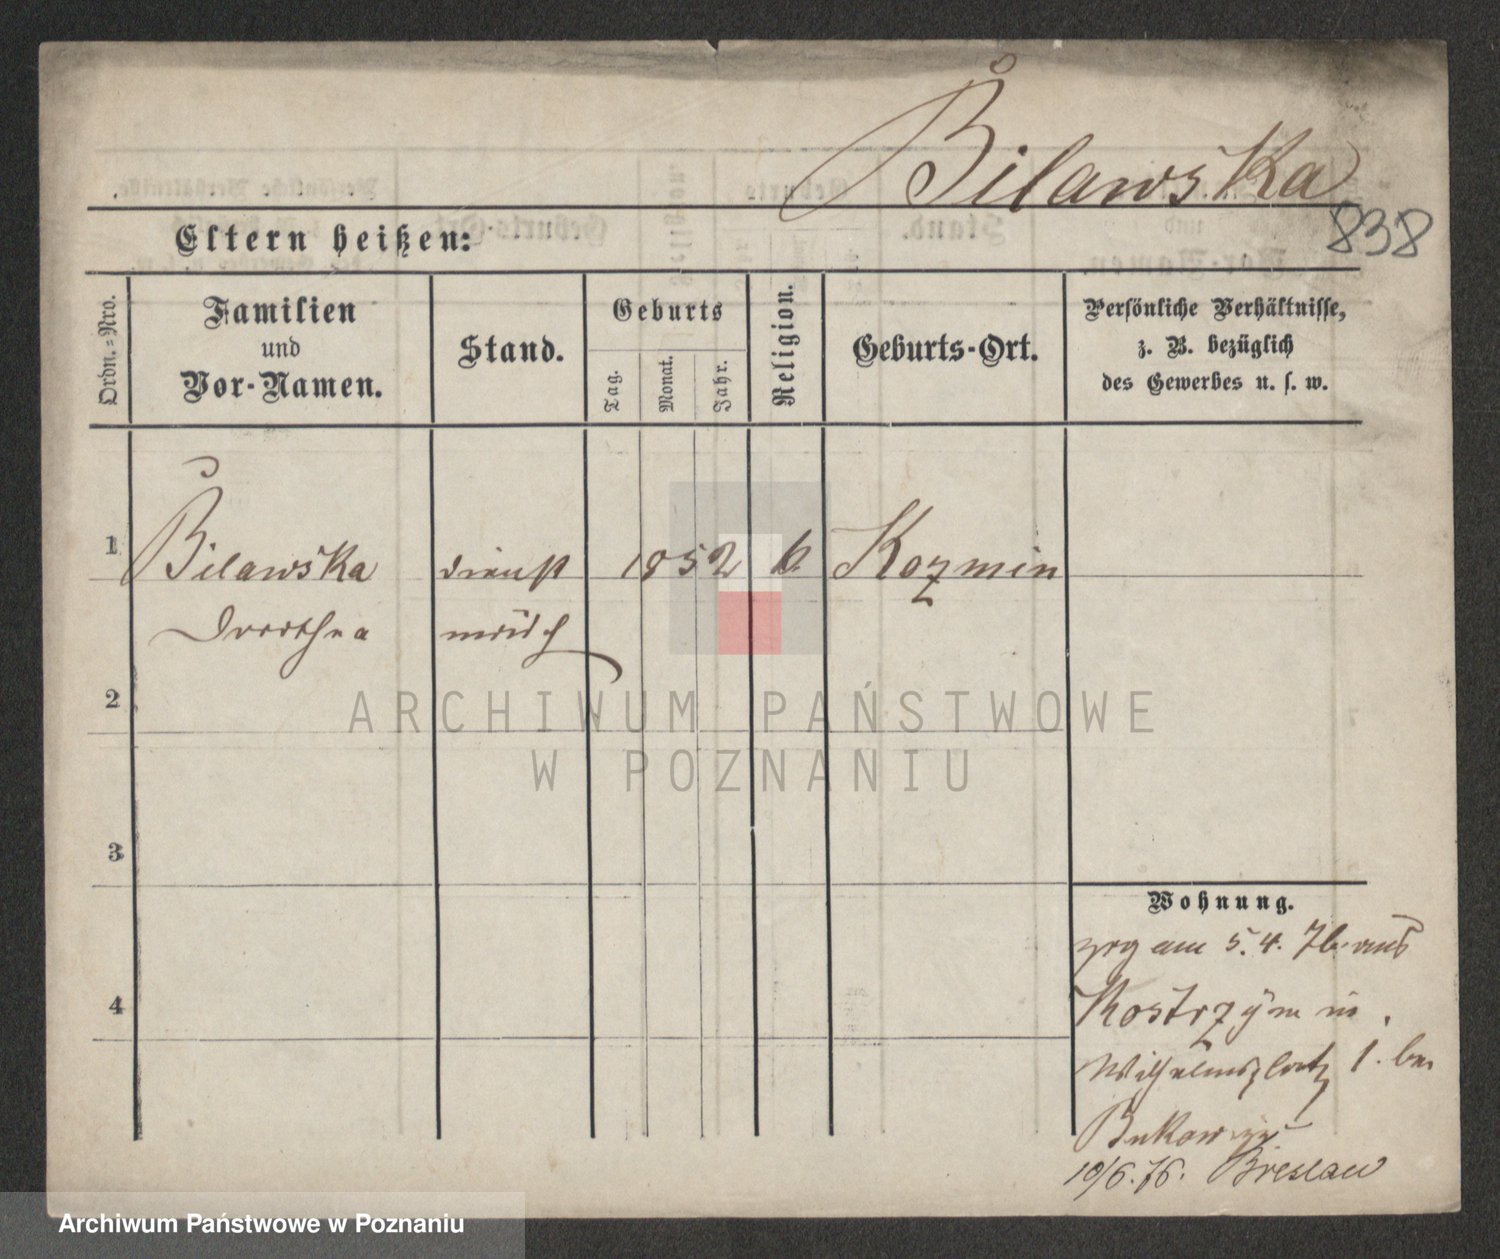 Bilawska
838
Eltern heißen:
Ordn.-Nro.
Familien
und
Vor-Namen.
Stand.
Geburts
Tag.
Monat.
Jahr.
Religion.
Geburts-Ort.
Persönliche Verhältnisse,
z. B. bezüglich
des Gewerbes u. s. w.
1
Bilawska
Dorothea
dienst
mädch
1852
k
Kozmin
2
3
4
ARCHIWUM PAŃSTWOWE
W POZNANIU
Wohnung.
zog am 5. 4. 76 aus
Kostrzyn in
Wilhelmsplatz 1. bei
10/6. 76. Breslau
Archiwum Państwowe w Poznaniu